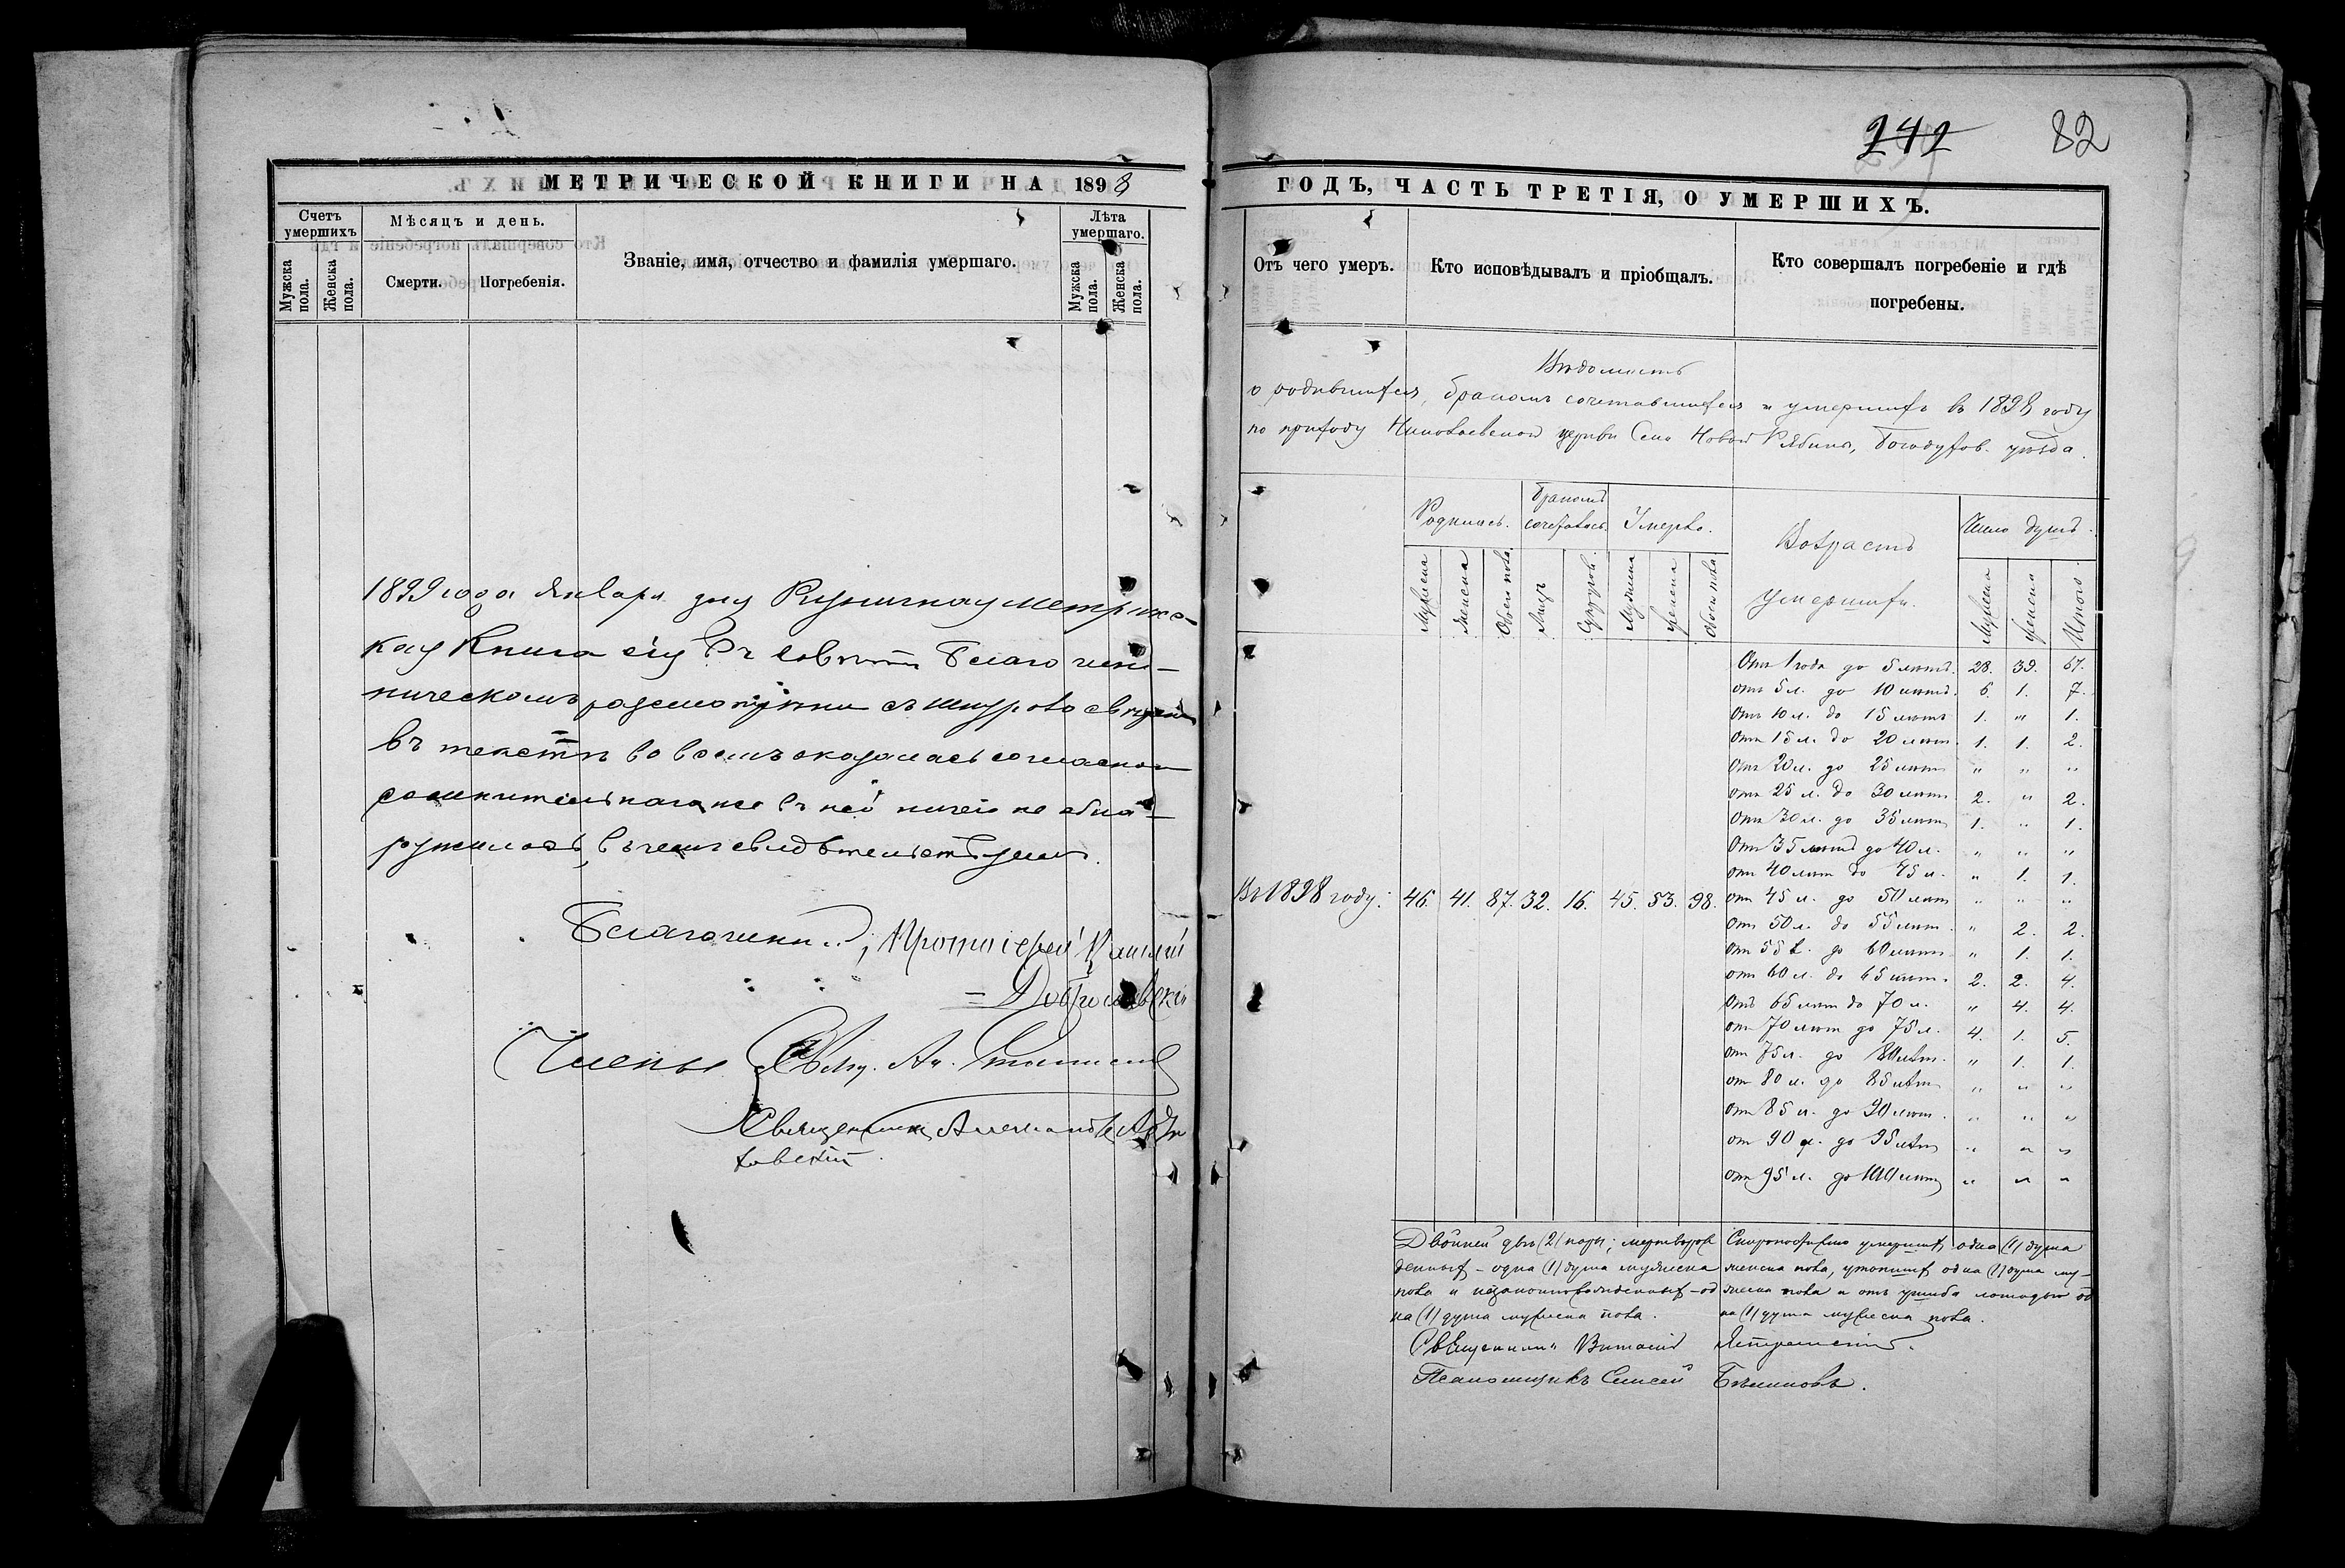 242 82
МЕТРИЧЕСКОЙ КНИГИ НА 1898
Счетъ умершихъ
Мужска пола.
Женска пола.
Мѣсяцъ и день.
Смерти.
Погребенія.
Званіе, имя, отчество и фамилія умершаго.
Лѣта умершаго.
Мужска пола.
Женска пола.
1899 года Января дня Ризничная метриче-
кая Книга сія въ совѣтѣ Благочин-
ническомъ разсмотрѣна съ шнурово
въ текстѣ во всемъ оказалась согласною
сомнительнаго же въ ней ничего не обна-
ружилось, въ чемъ свидѣтельствуемъ.
Благочинный, Протоіерей
Члены Свящ. Ал.
Священникъ
ГОДЪ, ЧАСТЬ ТРЕТІЯ, О УМЕРШИХЪ.
Отъ чего умеръ.
Кто исповѣдывалъ и пріобщалъ.
Кто совершалъ погребеніе и гдѣ
погребены.
Вѣдомость
о родившихся, бракомъ сочетавшихся и умершихъ въ 1898 году
по приходу Николаевской церкви Села Новой Рябины, Богодухов. уѣзда.
Родились. Бракомъ сочетавъ. Умерло.
Возрастъ умершихъ. Число душъ.
Мужска Женска Обоего пола Лицъ Супруговъ. Мужска Женска Обоего пола
Мужска Женска Итого
Въ 1898 году: 46. 41. 87. 32. 16. 45. 53. 98.
Отъ 1 года до 5 лѣтъ. 28. 39. 67.
отъ 5 л. до 10 лѣтъ. 6. 1. 7.
Отъ 10 л. до 15 лѣтъ 1. " 1.
Отъ 15 л. до 20 лѣтъ. 1. 1. 2.
Отъ 20 л. до 25 лѣтъ " " "
отъ 25 л. до 30 лѣтъ 2. " 2.
Отъ 30 л. до 35 лѣтъ 1. " 1.
Отъ 35 лѣтъ до 40 л. " " "
отъ 40 лѣтъ до 45 л. " 1. 1.
отъ 45 л. до 50 лѣтъ " " "
Отъ 50 л. до 55 лѣтъ. " 2. 2.
отъ 55 л. до 60 лѣтъ " 1. 1.
отъ 60 л. до 65 лѣтъ. 2. 2. 4.
Отъ 65 лѣтъ до 70 л. " 4. 4.
отъ 70 лѣтъ до 75 л. 4. 1. 5.
отъ 75 л. до 80 лѣтъ. " 1. 1.
отъ 80 л. до 85 лѣтъ " " "
отъ 85 л. до 90 лѣтъ. " " "
от 90 л. до 95 лѣтъ " " "
отъ 95 л. до 100 лѣтъ " " "
Двойней двѣ (2) пары; мертворож
денныхъ - одна (1) душа мужеска
пола и незаконнорожденныхъ - од
на (1) душа мужеска пола.
Скоропостижно умершихъ одна (1) душа
женска пола, утопшихъ одна (1) душа му-
жеска пола и отъ ушиба лошадью од
на (1) душа мужеска пола.
Священникъ Виталій Ястремскій.
Псаломщикъ